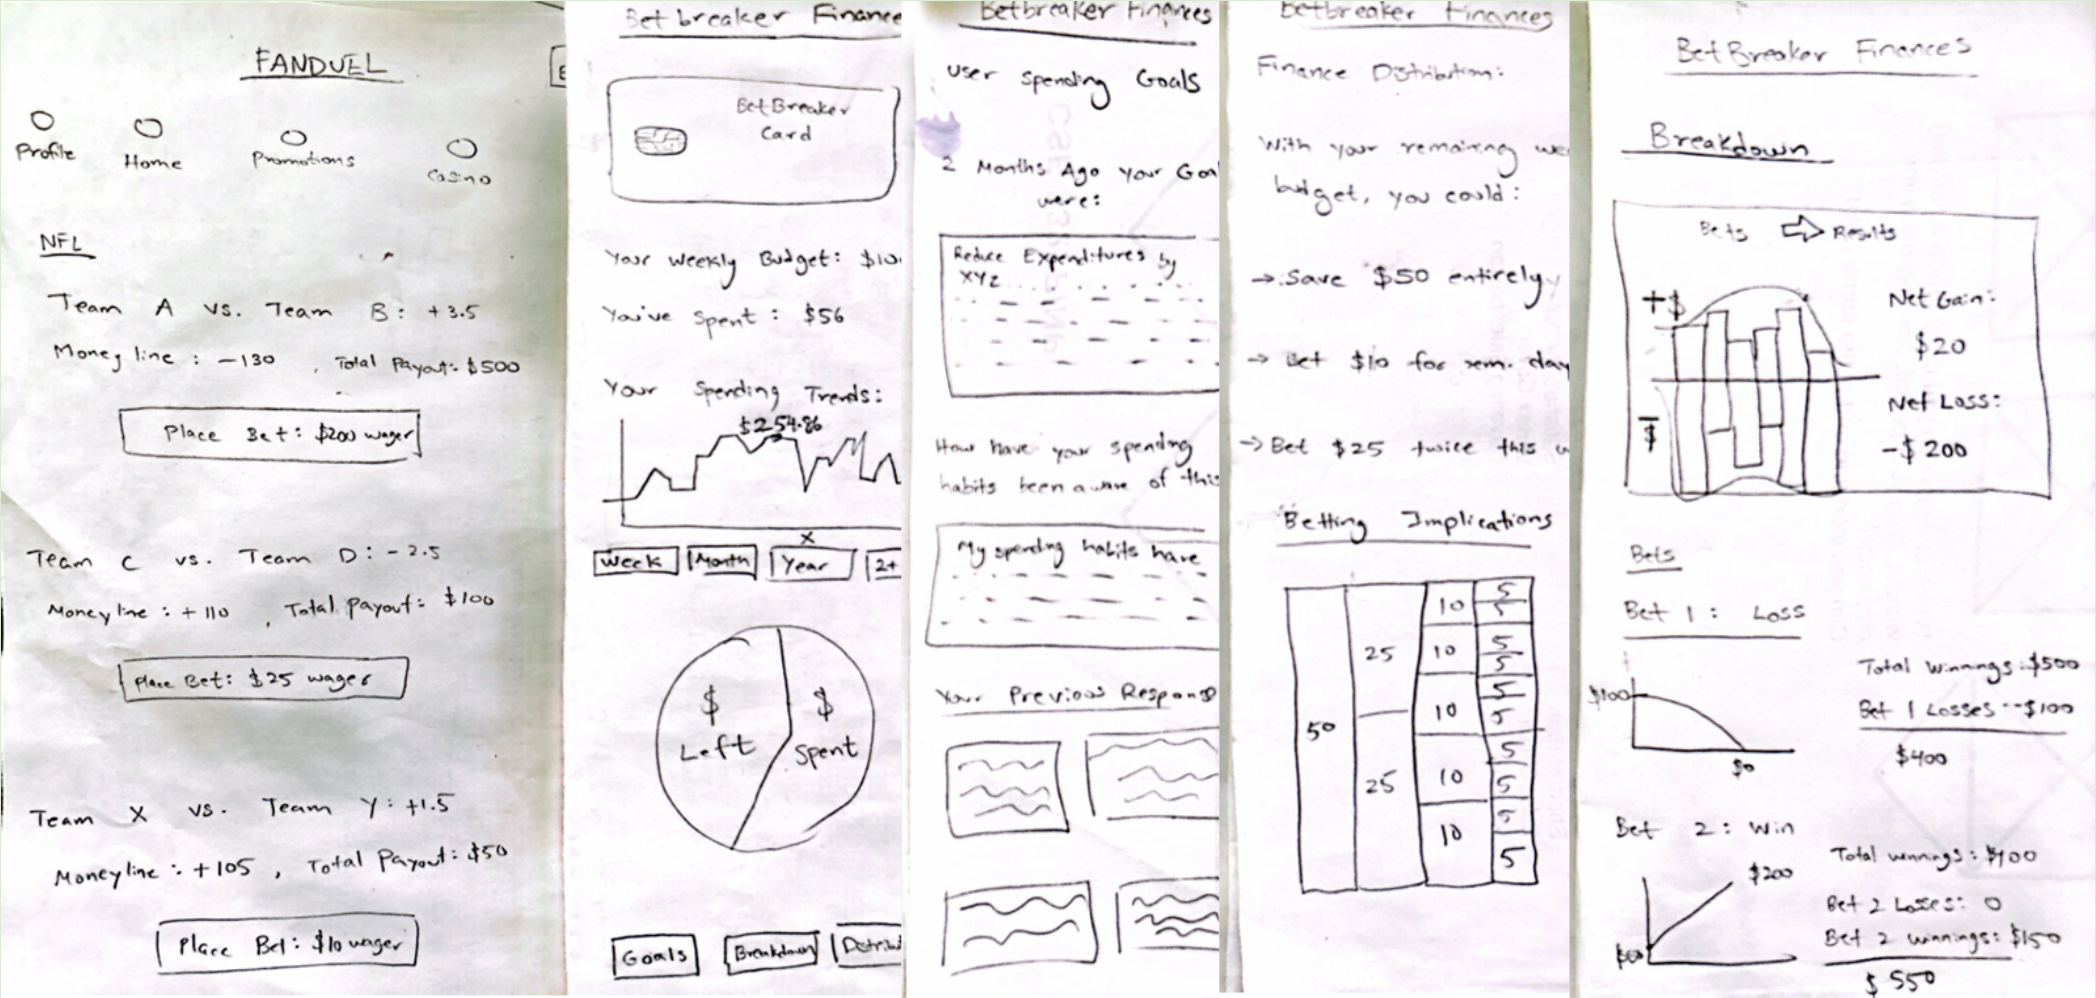 FANDUEL
Profile
Home
Promotions
Casino
NFL
Team A vs. Team B: +3.5
Money line: -130, Total Payout: $500
Place Bet: $200 wager
Team C vs. Team D: -2.5
Moneyline: +110, Total Payout: $100
Place Bet: $25 wager
Team X vs. Team Y: +1.5
Moneyline: +105, Total Payout: $50
Place Bet: $10 wager
Betbreaker Finance
BetBreaker
Card
Your Weekly Budget: $10
You've Spent: $56
Your Spending Trends:
$254.86
X
Week
Month
Year
2+
$
Left
$
Spent
Goals
Breakdown
Distribu
Betbreaker Finances
User Spending Goals
2 Months Ago Your Goal
were:
Reduce Expenditures by
XYZ
How have your spending
habits been aware of this
My spending habits have
Your Previous Respons
Betbreaker Finances
Finance Distribution:
With your remaining wee
budget, you could:
→ Save $50 entirely
→ Bet $10 for rem. day
→ Bet $25 twice this w
Betting Implications
50
25
25
10
10
10
10
10
5
5
5
5
5
5
5
5
5
5
BetBreaker Finances
Breakdown
Bets ⇨ Results
+$
-$
Net Gain:
$20
Net Loss:
-$200
Bets
Bet 1: Loss
$100
$0
Total Winnings: $500
Bet 1 Losses: -$100
$400
Bet 2: Win
$200
Total winnings: $400
Bet 2 Losses: 0
Bet 2 winnings: $150
$550